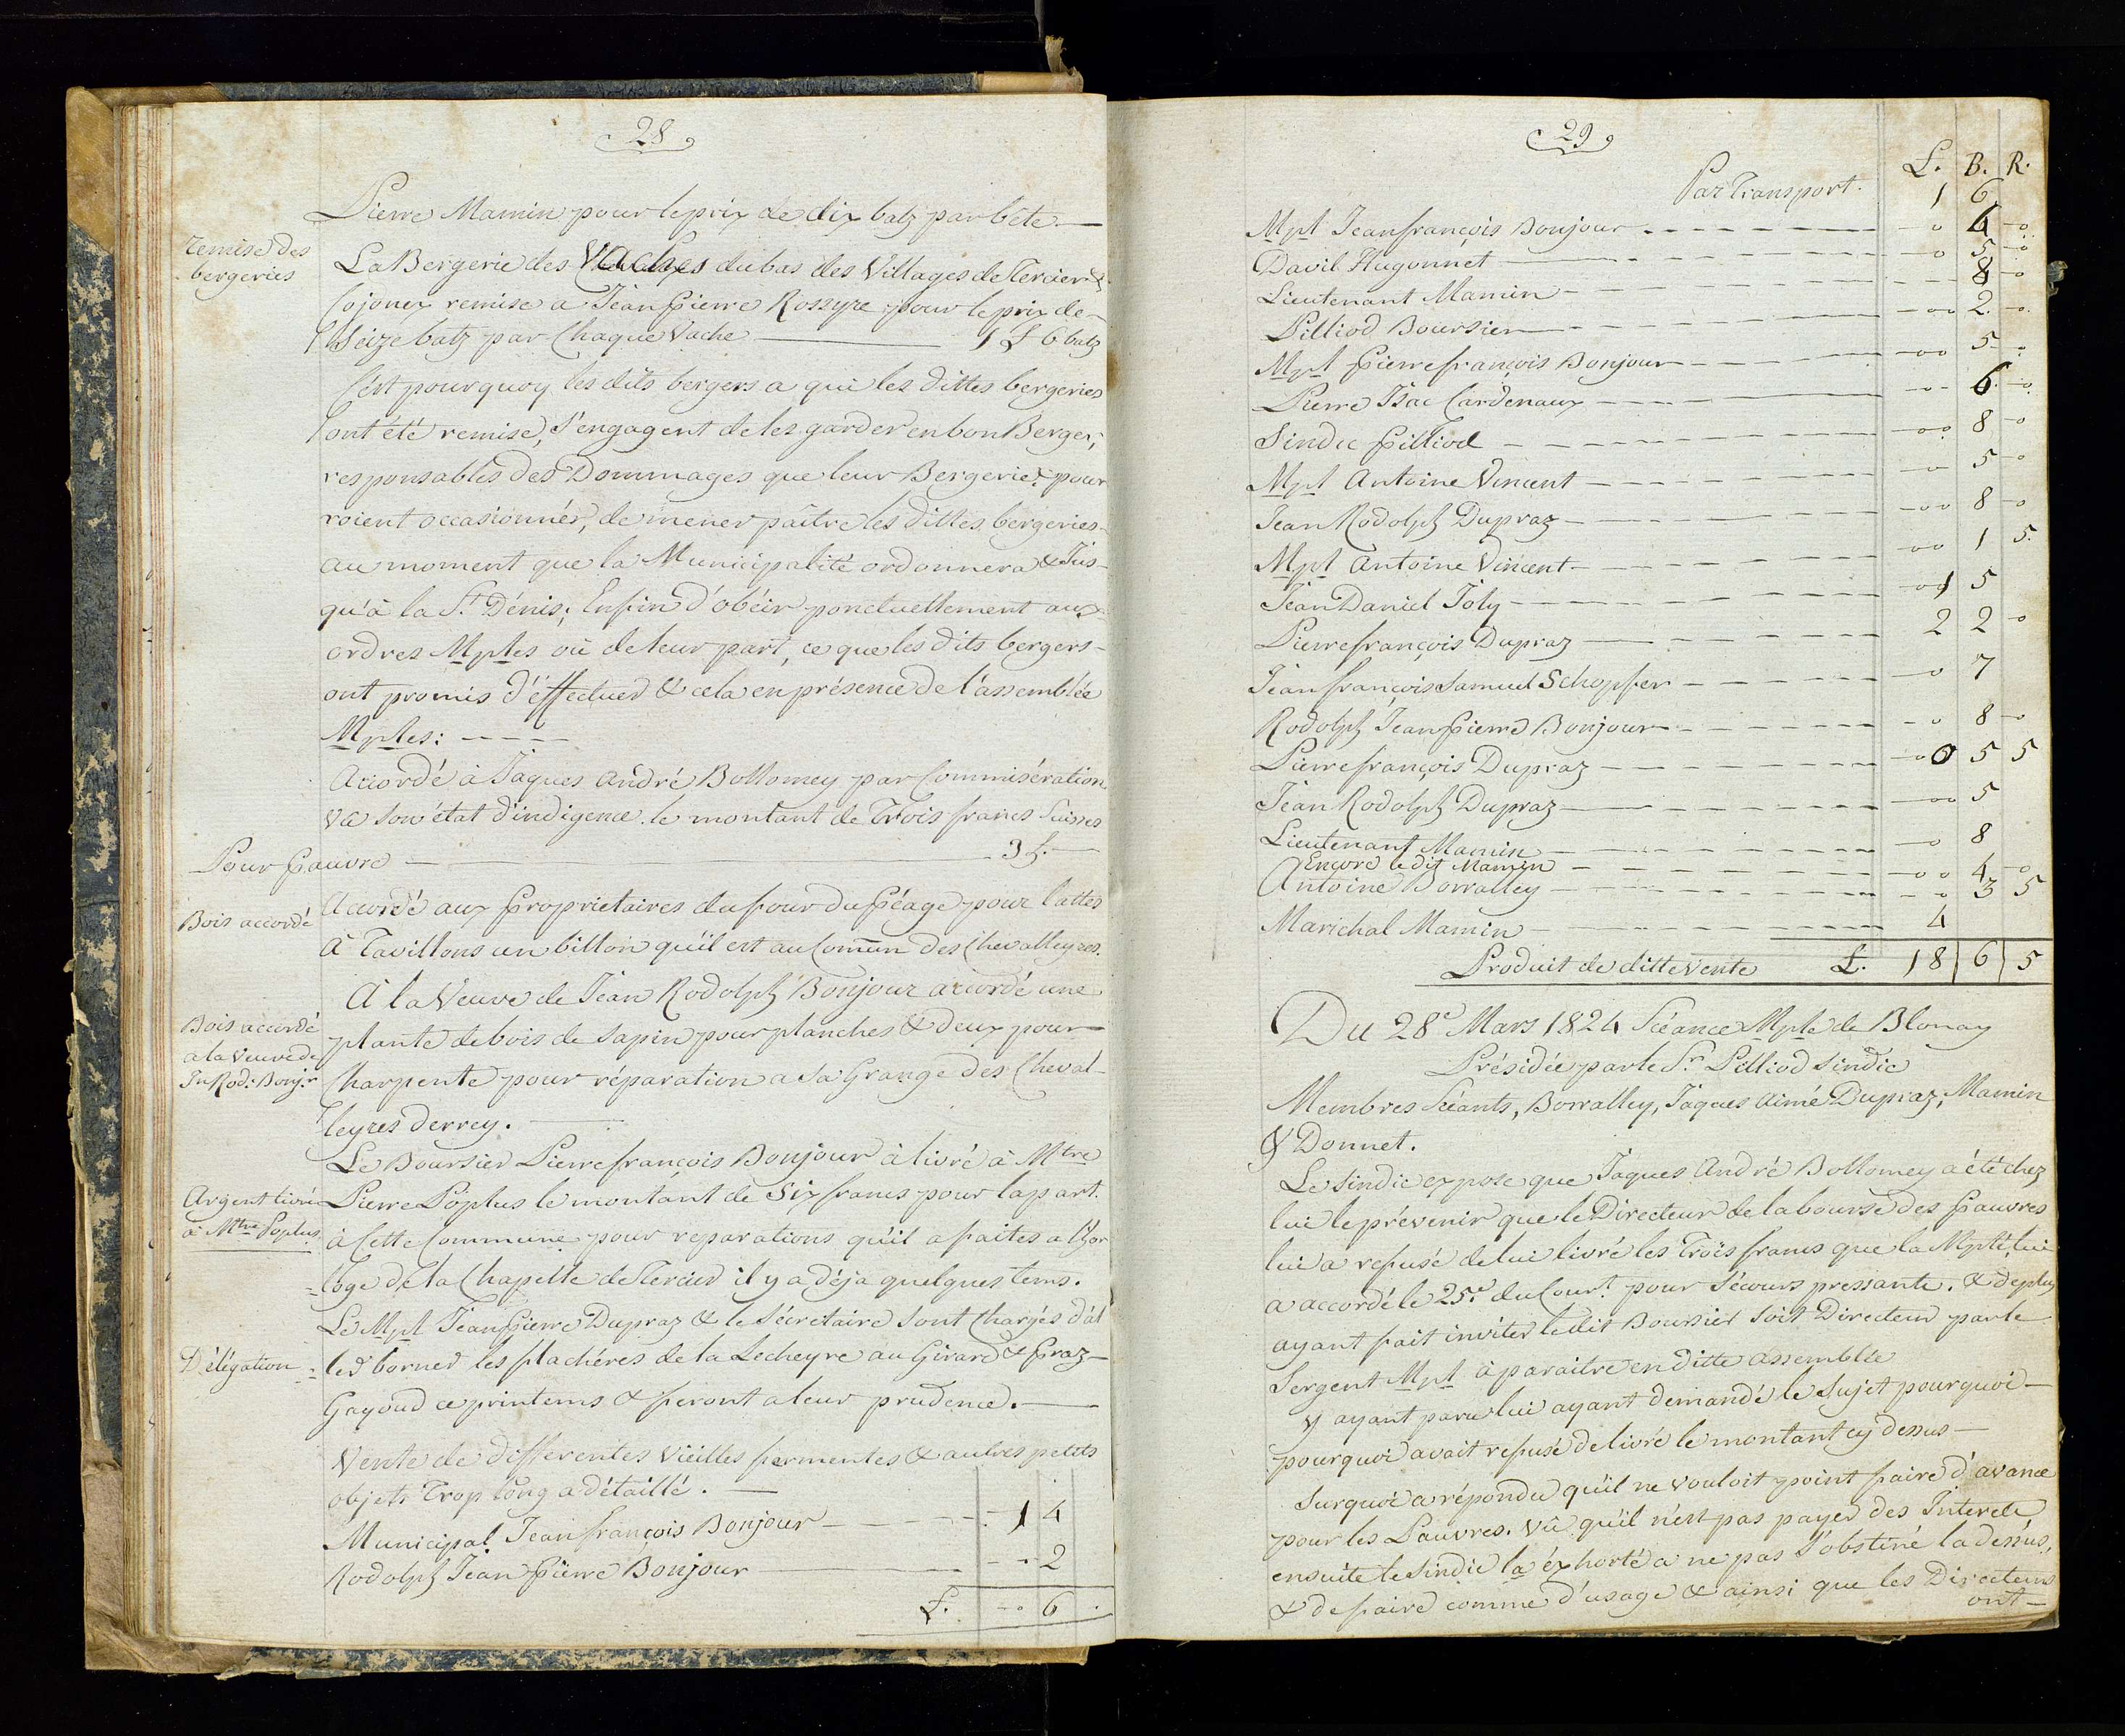 28
Pierre Mamin pour le prix de dix batz par bête.
remise des
bergeries
La Bergerie des Vaches du bas des Villages de Tercier &
Cojonex remise a Jean Pierre Rossyre pour le prix de
Seize batz par Chaque Vache — 1 £ 6 batz
C'est pourquoy les dits bergers a qui les dittes bergeries
ont été remise, s'engagent de les garder en bon Berger,
responsables des Dommages que leur Bergeries pour
roient occasionnés, de mener paître les dittes bergeries
au moment que la Municipalité ordonnera & Jus-
qu'à la St Dénis; Enfin d'obéir ponctuellement aux
ordres Mples où de leur part, ce que les dits bergers
ont promis d'éffectuer & cela en présence de l'assemblée
Mples:
Accordé à Jaques André Bottomey par Commisération
vu son état d'indigence le montant de Trois francs Suisses
Pour Pauvre — 3 f.
Bois accordé
Accordé aux Proprietaires du four du Péage pour lattes
à Tavillons un billon qu'il est au Comun des Chevalleyres.
Bois accordé
a la Veuve de
Jn Rod: Bonj.r
A la Veuve de Jean Rodolph Bonjour accordé une
plante de bois de sapin pour planches & deux pour
Charpente pour réparation a sa Grange des Cheval-
leyres derrey.
Argent livré
à Mtre Poplus
Le Boursier Pierre françois Bonjour à livré à Mtre
Pierre Poplus le montant de Six francs pour la part
à Cette Commune pour reparations qu'il a faites a l'hor
=loge de la Chapelle de Tercier il y a déja quelques tems.
Délégation
Le Mpl Jean Pierre Dupraz & le Sécretaire sont Chargés d'al
=ler borner les flachéres de la Lecheyre au Girard & Praz-
Gayoud ce printems & feront a leur prudence.
Vente de differentes Vieilles fermentes & autres petits
objets Trop long a détaillé.
Municipal Jean françois Bonjour — 1 4
Rodolph Jean Pierre Bonjour — 2
£. 6
29
£. B. R.
Par Transport. 1 6
Mpl Jean françois Bonjour 4
David Hugonnet 5
Lieutenant Mamin 8
Pilliod Boursier 2
Mpl Pierre françois Bonjour 5
Pierre Isac Cardenaux 6
Sindic Pilliod 8
Mpl Antoine Vincent 5
Jean Rodolph Dupraz 8
Mpl Antoine Vincent 1 5
Jean Daniel Joly 1 5
Pierre françois Dupraz 2 2
Jean françois Samuel Schopfer 7
Rodolph Jean Pierre Bonjour 8
Pierre françois Dupraz 0 5 5
Jean Rodolph Dupraz 5
Lieutenant Mamin 8
Encore ledit Mamin 4
Antoine Borralley 3 5
Marichal Mamin 4
Produit de ditte Vente £. 18 6 5
Du 28e Mars 1824 Séance Mple de Blonay
Présidée par le Sr Pilliod Sindic
Membres Séants, Borralley, Jaques Aimé Dupraz, Mamin
& Donnet.
Le Sindic expose que Jaques André Bottomey a été chez
lui le prévenir que le Directeur de la bourse des Pauvres
lui a refusé de lui livré les Trois francs que la Mplté lui
a accordé le 25e du Court pour Sécours pressante. & deplus
ayant fait inviter ledit Boursier soit Directeur par le
Sergent Mpl à paraitre en ditte assemblée
y ayant paru lui ayant demandé le Sujet pourquoi
pourquoi avait refusé de livré le montant cy dessus
Surquoi a répondu qu'il ne vouloit point faire d'avance
pour les Pauvres. vû qu'il n'est pas payer des Interets
ensuite le Sindic la exhorté a ne pas s'obstiné la dessus,
& de faire comme d'usage & ainsi que les Directeurs
ont